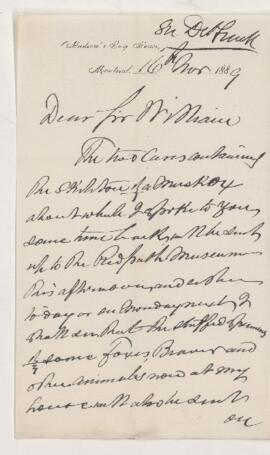 Montreal, 16th Nov 1889
Dear Sir William
The two Cases containing
the Skeleton of a Musk Ox
about which I spoke to you
some time back, will be sent
up to the Redpath Museum
this afternoon, and either
to day or on Monday next I
shall send the stuffed
of some Foxes, Beaver and
other animals now at my
house will also be sent
on